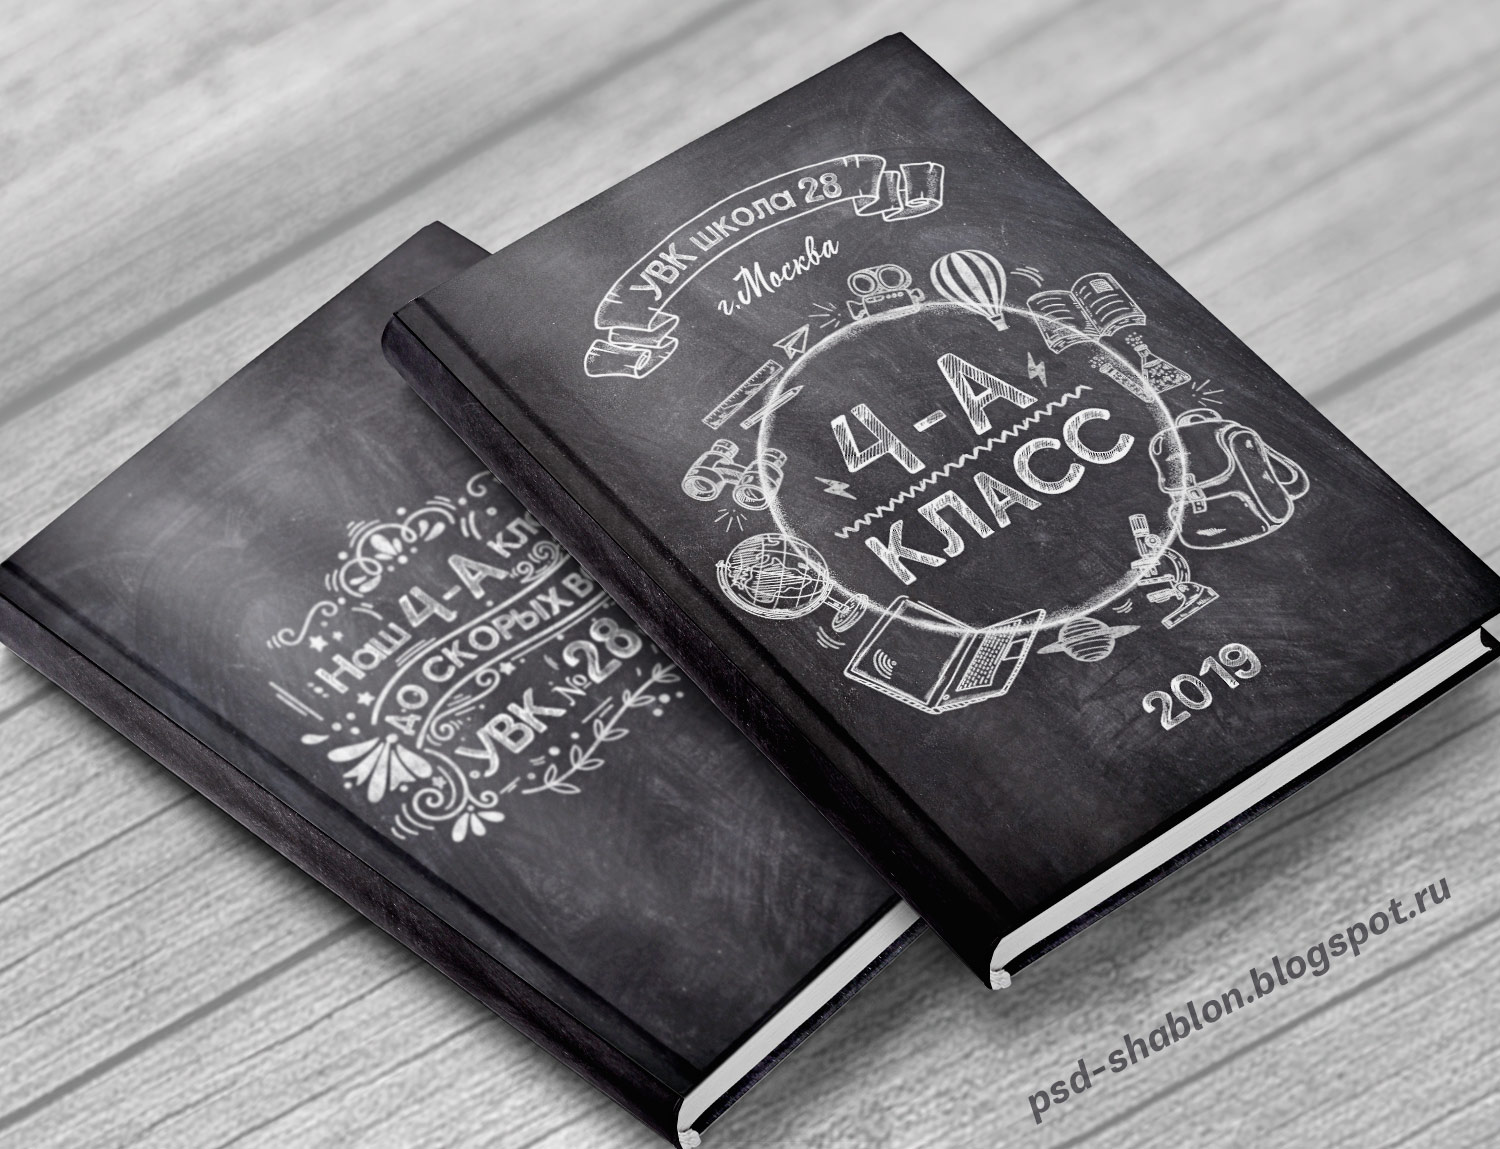 УВК школа 28
г.Москва
4-А
КЛАСС
2019
Наш 4-А
ДО СКОРЫХ
УВК №28
psd-shablon.blogspot.ru